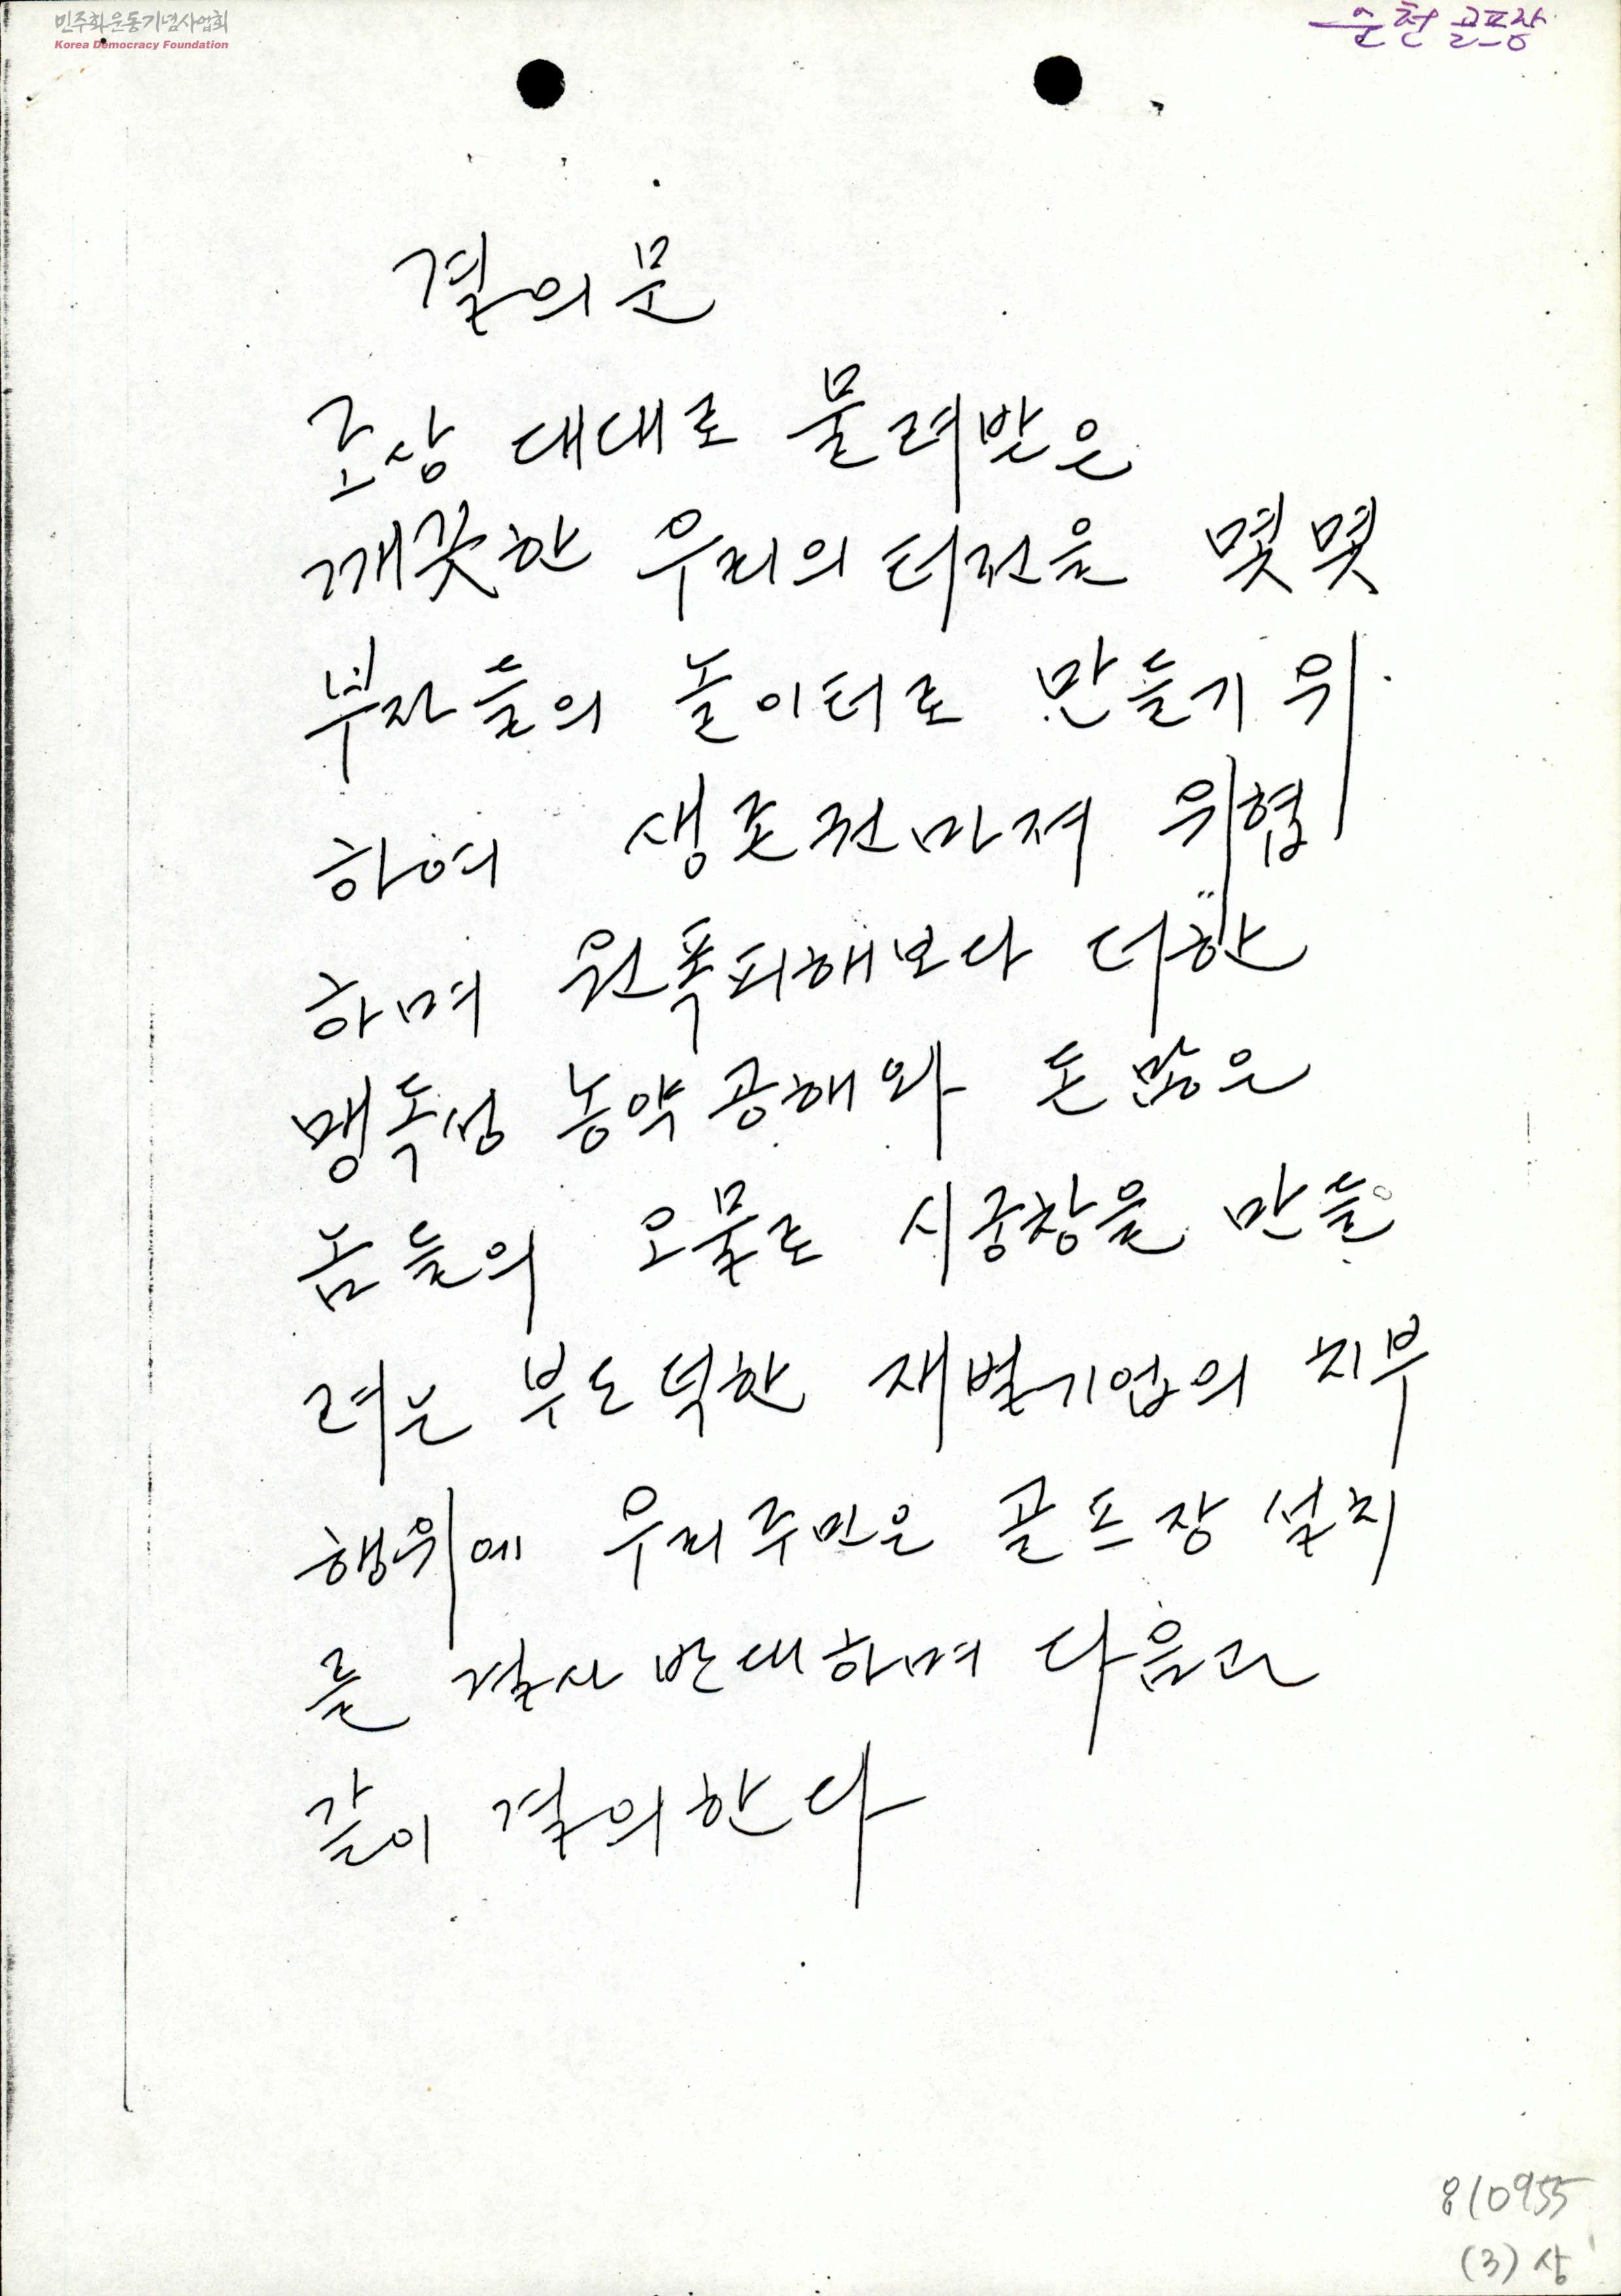 민주화운동기념사업회
Korea Democracy Foundation
순천 골프장
결의문
조상 대대로 물려받은
깨끗한 우리의 터전을 몇몇
부자들의 놀이터로 만들기 위
하여 생존권마저 위협
하며 원폭피해보다 더한
맹독성 농약공해와 돈많은
놈들의 오물로 시궁창을 만들
려는 부도덕한 재벌기업의 치부
행위에 우리주민은 골프장 설치
를 결사반대하며 다음과
같이 결의한다
810955
(3) 상